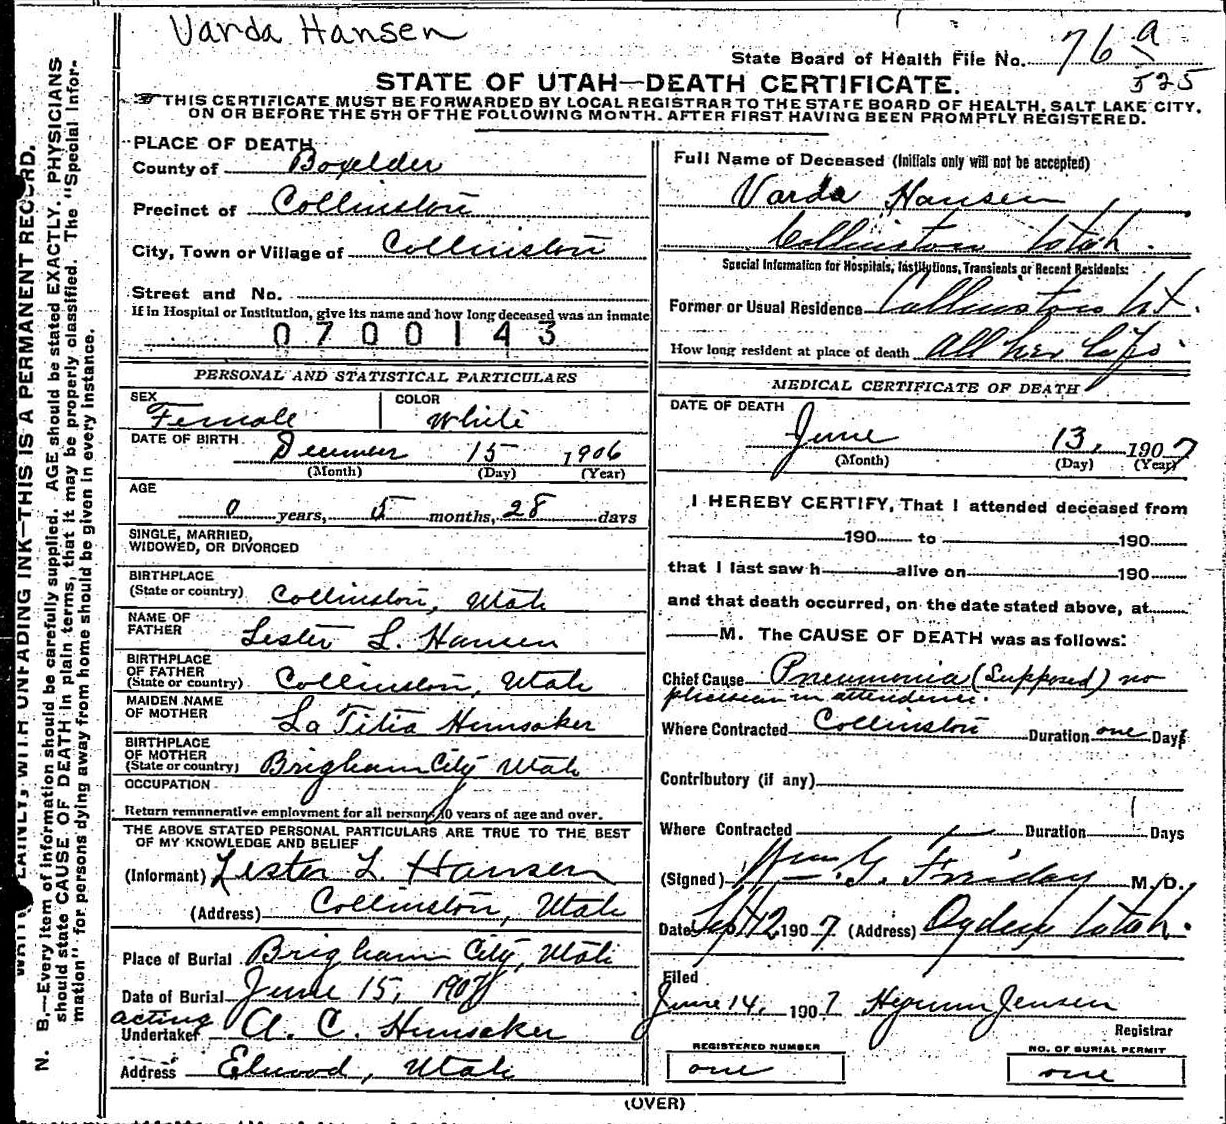 Varda Hansen
State Board of Health File No. 76 a
525
STATE OF UTAH—DEATH CERTIFICATE.
THIS CERTIFICATE MUST BE FORWARDED BY LOCAL REGISTRAR TO THE STATE BOARD OF HEALTH, SALT LAKE CITY,
ON OR BEFORE THE 5TH OF THE FOLLOWING MONTH. AFTER FIRST HAVING BEEN PROMPTLY REGISTERED.
N. B.—Every item of information should be carefully supplied. AGE should be stated EXACTLY. PHYSICIANS
should state CAUSE OF DEATH in plain terms, that it may be properly classified. The "Special Infor-
mation" for persons dying away from home should be given in every instance.
WITH UNFADING INK—THIS IS A PERMANENT RECORD.
PLACE OF DEATH
County of Boxelder
Precinct of Collinston
City, Town or Village of Collinston
Street and No.
If in Hospital or Institution, give its name and how long deceased was an inmate
0700143
PERSONAL AND STATISTICAL PARTICULARS
SEX COLOR
Female White
DATE OF BIRTH December 15 1906
(Month) (Day) (Year)
AGE
0 years, 5 months, 28 days
SINGLE, MARRIED,
WIDOWED, OR DIVORCED
BIRTHPLACE
(State or country) Collinston, Utah
NAME OF
FATHER Lester L. Hansen
BIRTHPLACE
OF FATHER
(State or country) Collinston, Utah
MAIDEN NAME
OF MOTHER La Titia Hunsaker
BIRTHPLACE
OF MOTHER
(State or country) Brigham City Utah
OCCUPATION
Return remunerative employment for all persons 10 years of age and over.
THE ABOVE STATED PERSONAL PARTICULARS ARE TRUE TO THE BEST
OF MY KNOWLEDGE AND BELIEF
(Informant) Lester L. Hansen
(Address) Collinston, Utah
Place of Burial Brigham City, Utah
Date of Burial June 15, 1907
acting
Undertaker A. C. Hunsaker
Address Elwood, Utah
Full Name of Deceased (Initials only will not be accepted)
Varda Hansen
Collinston Utah.
Special Information for Hospitals, Institutions, Transients or Recent Residents:
Former or Usual Residence Collinston Ut.
How long resident at place of death all her life
MEDICAL CERTIFICATE OF DEATH
DATE OF DEATH
June 13, 1907
(Month) (Day) (Year)
I HEREBY CERTIFY, That I attended deceased from
190 to 190
that I last saw h alive on 190
and that death occurred, on the date stated above, at
M. The CAUSE OF DEATH was as follows:
Chief Cause Pneumonia (Supposed) no
phicician in attendence.
Where Contracted Collinston Duration one Days
Contributory (if any)
Where Contracted Duration Days
(Signed) Wm. G. Friday M. D.
Date Sept 12 1907 (Address) Ogden Utah.
Filed
June 14, 1907 Hyrum Jensen
Registrar
REGISTERED NUMBER NO. OF BURIAL PERMIT
one one
(OVER)